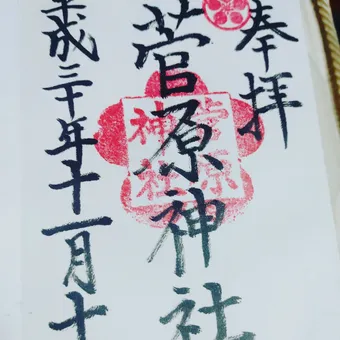 奉拝
菅原神社
菅原
神社
平成三十年十一月十